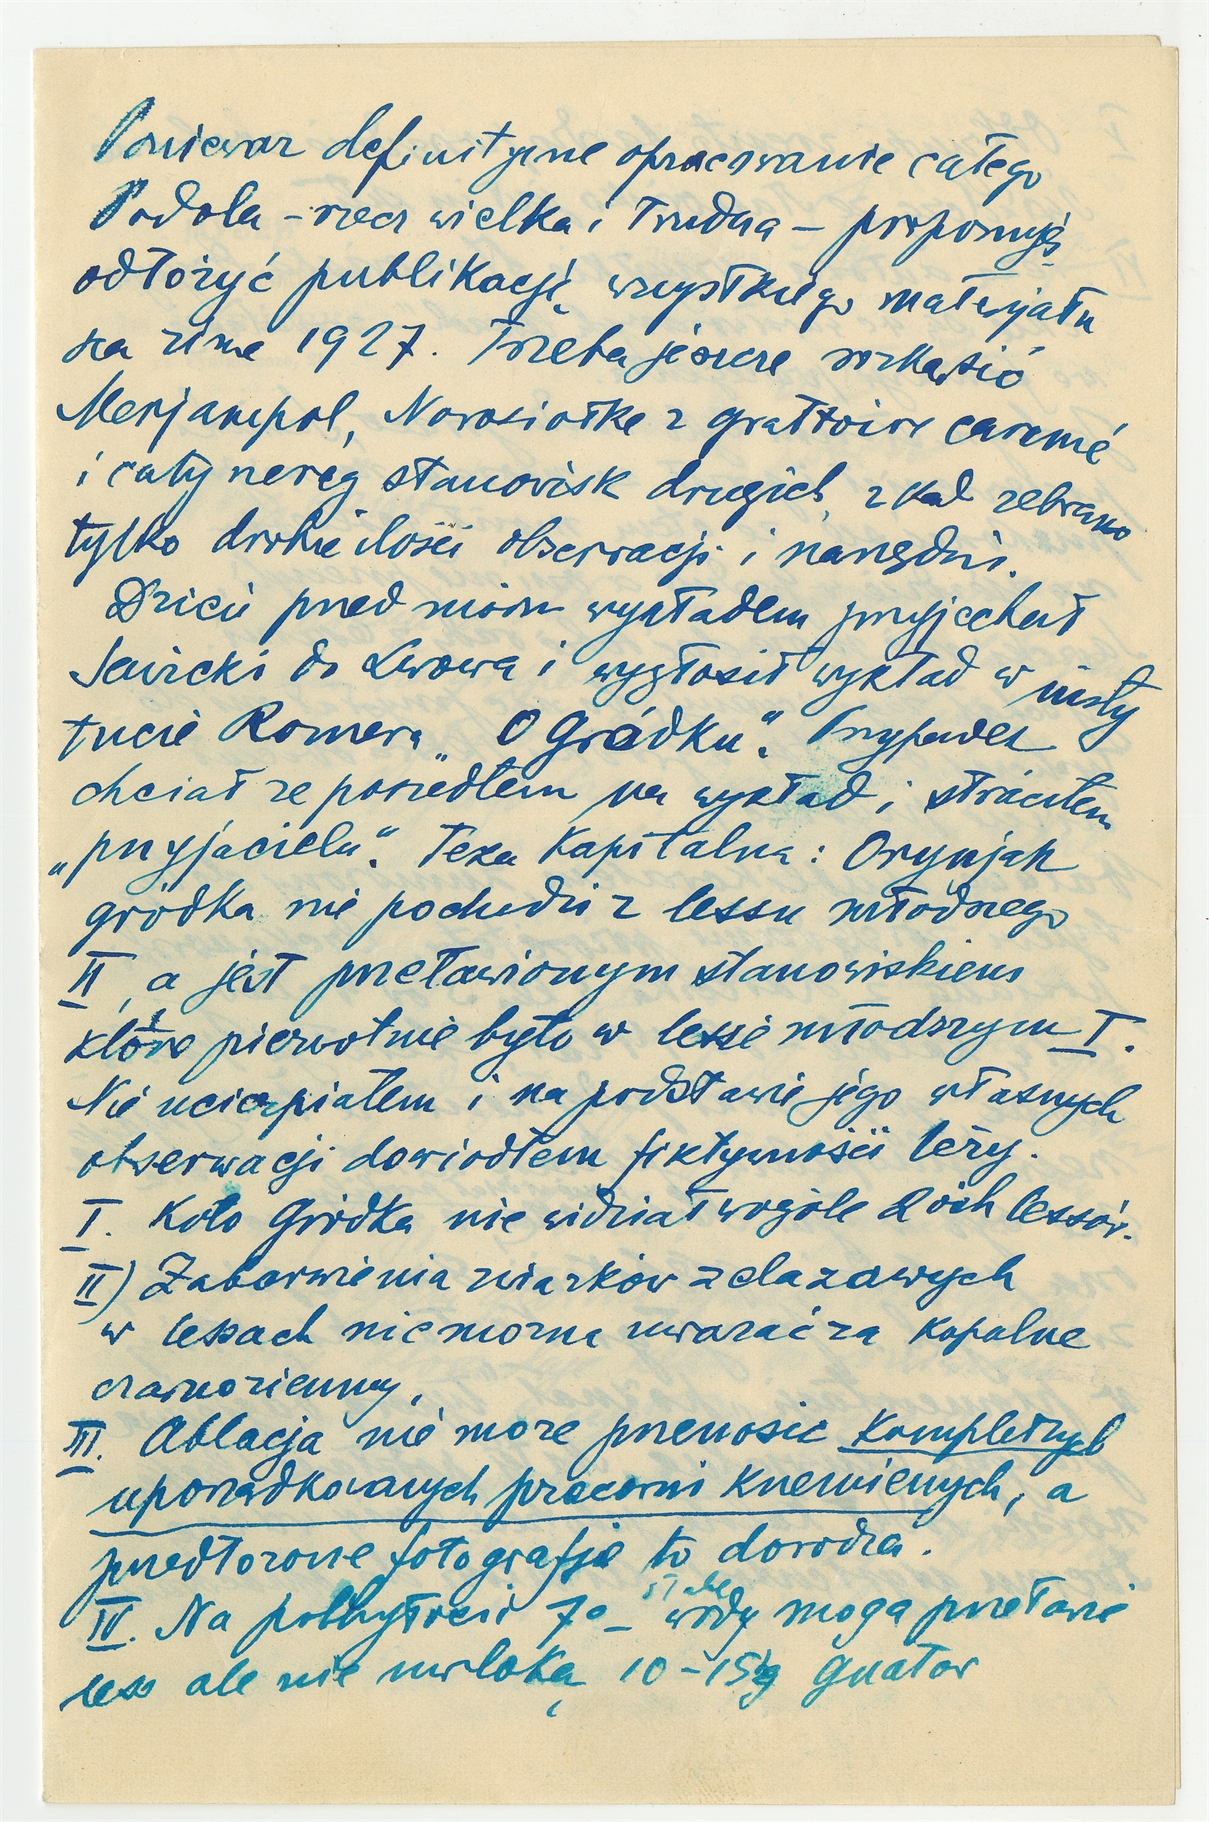 Ponieważ definitywne opracowanie całego
Podola – rzecz wielka i trudna – proponuję
odłożyć publikację wszystkiego materjału
na zimę 1927. Trzeba jeszcze
Marjampol, Nowosiółkę z grattoire carené
i cały szereg stanowisk drugich, zkąd zebrano
tylko drobne ilości obserwacji i narzędzi.
Dzień przed moim wykładem przyjechał
Sawicki do Lwowa i wygłosił wykład w insty
tucie Romera „O Gródku". Przypadek
chciał że poszedłem na wykład i straciłem
„przyjaciela". Teza kapitalna: Oryniak
gródka nie pochodzi z lessu młodszego
II, a jest przeławionym stanowiskiem
które pierwotnie było w lessie młodszym I.
Nie ucierpiałem i na podstawie jego własnych
obserwacji dowiodłem fiktywności tezy.
I. Koło Gródka nie widział wogóle 2óch lessów.
II) Zabarwienia związków żelazawych
w lessach nie można uważać za kopalne
czarnoziemy.
III. Ablacja nie może przenosić kompletnych
uporządkowanych pracowni krzemiennych, a
przedłożone fotografje to dowodzą.
IV. Na pochyłości 7° – słabe wody mogą przeławić
less ale nie uwloką 10 – 15 kg gnatów